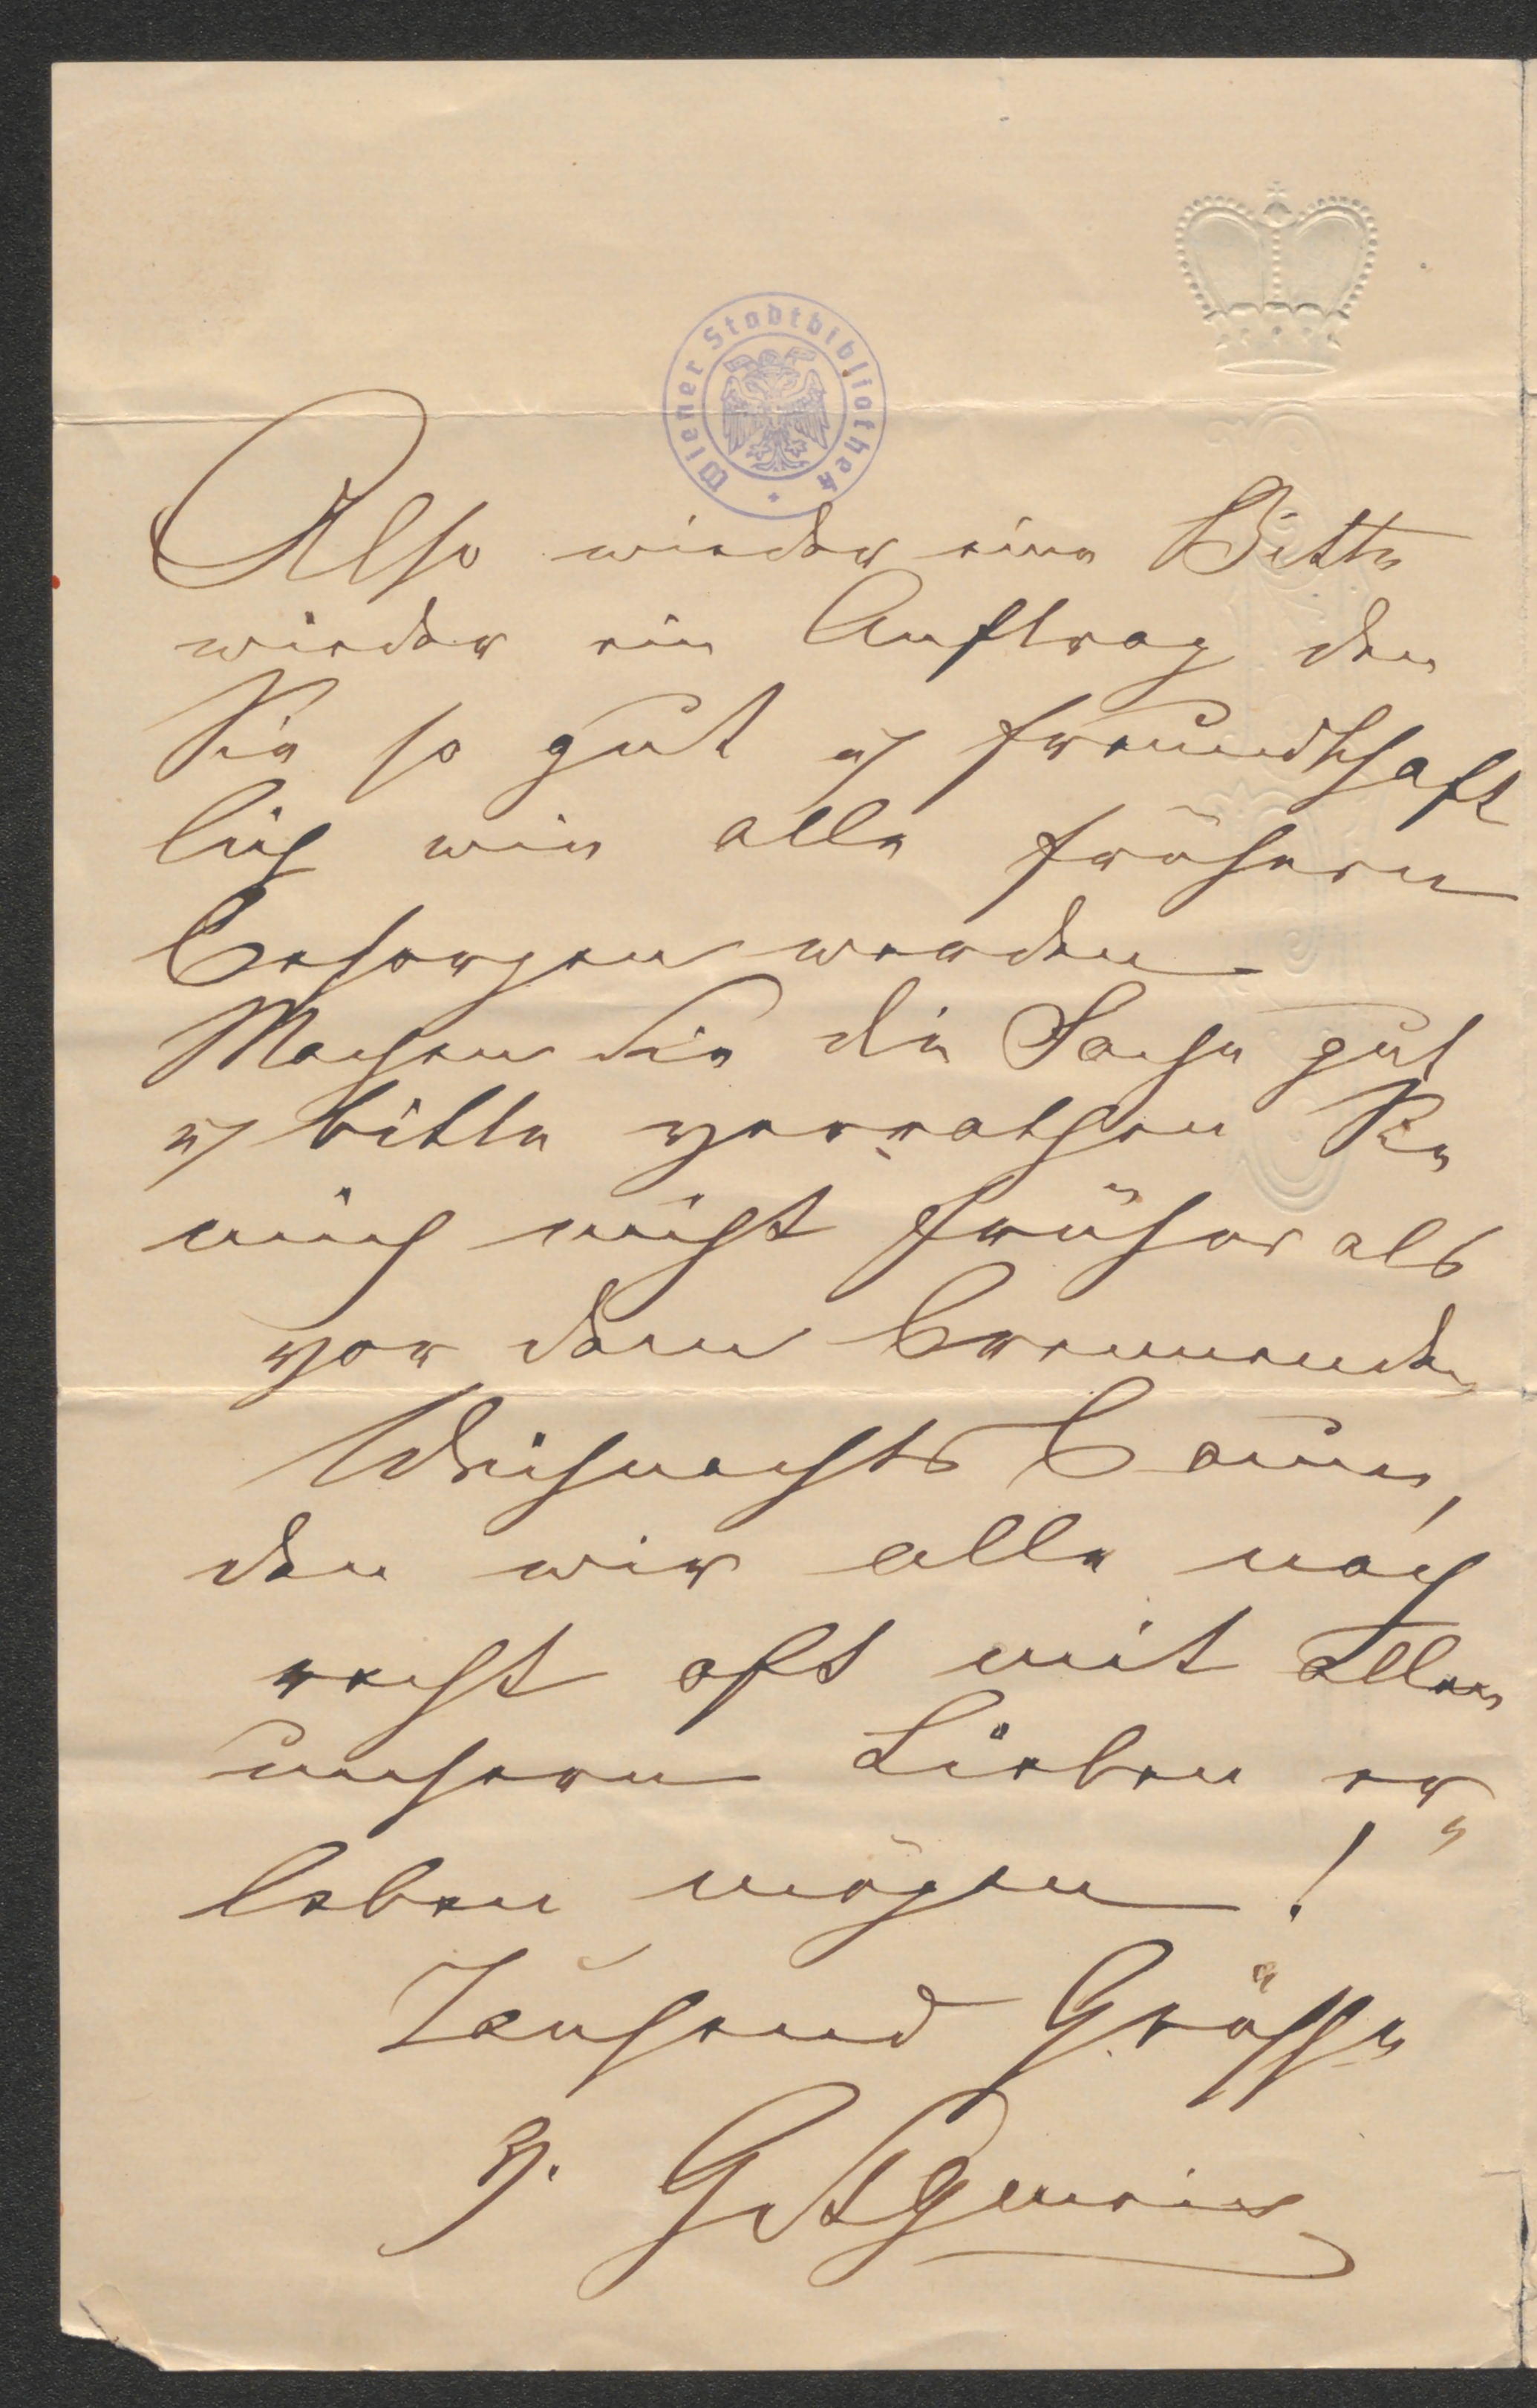 Wiener Stadtbibliothek
Also wieder eine Bitte
wieder ein Auftrag den
Sie so gut u freundschaft
lich wie alle frühern
besorgen werden
Machen Sie die Sache gut
u bitte verrathen Sie
mich nicht früher als
vor dem brennenden
Weihnachts baum,
den wir alle noch
recht oft mit allen
unsern Lieben er„
leben mögen!
Tausend Grüsse